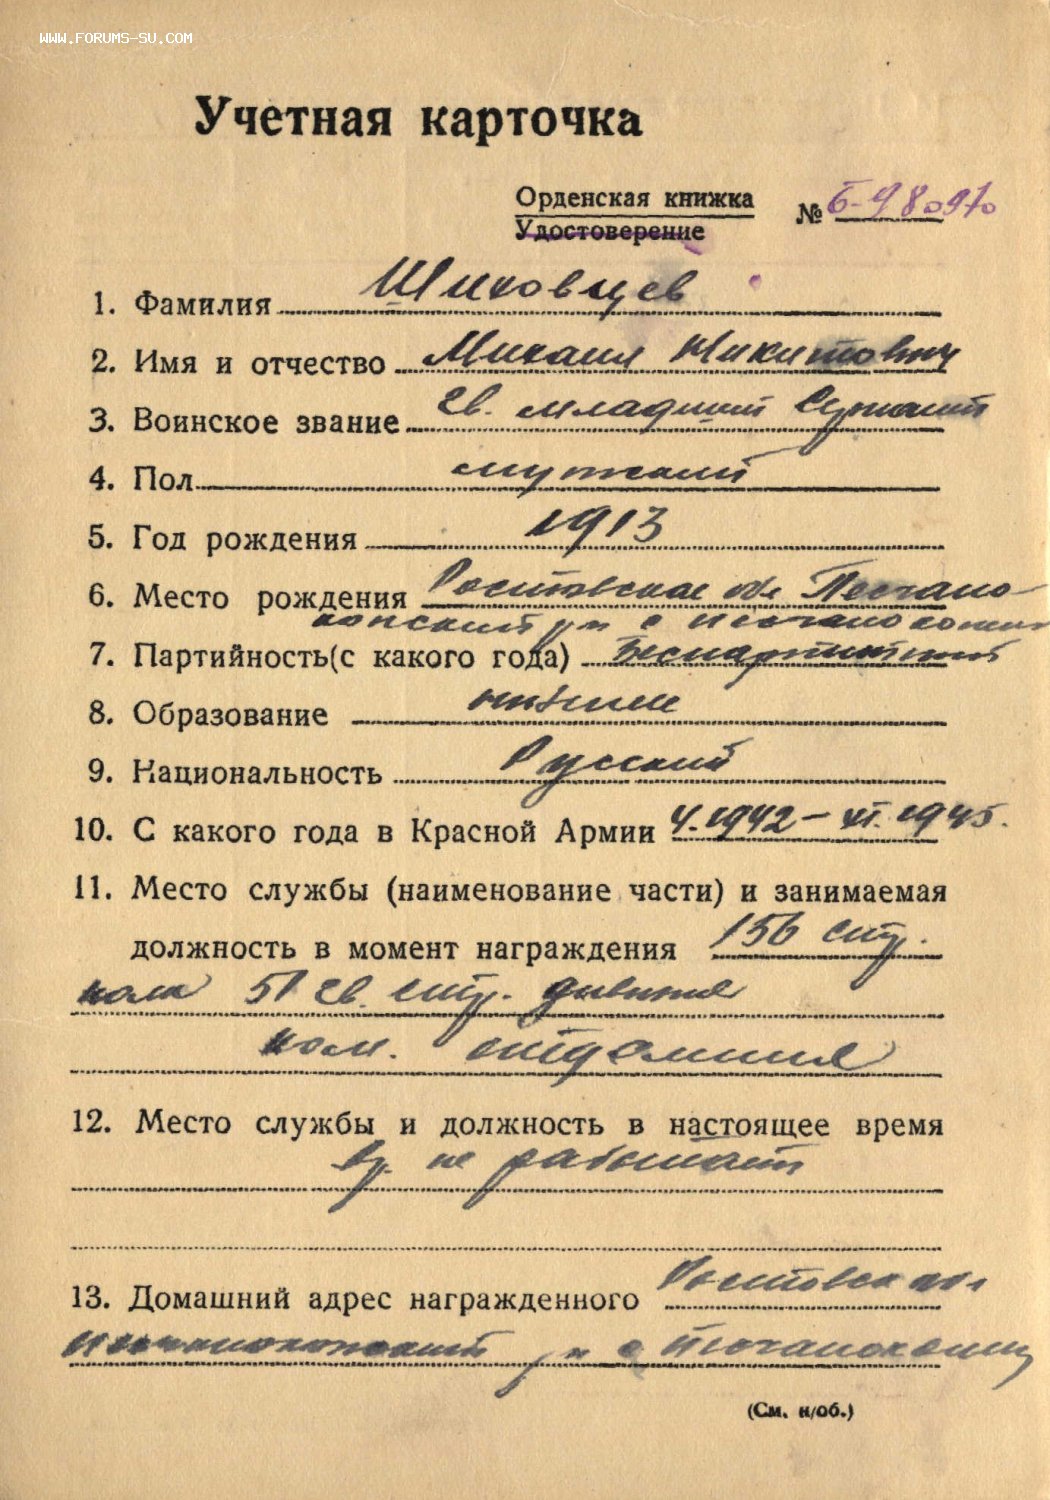 WWW.FORUMS-SU.COM
Учетная карточка
Орденская книжка
Удостоверение
№ Б-980970
1. Фамилия Шиховцев
2. Имя и отчество Михаил Никитович
3. Воинское звание Гв. младший Сержант
4. Пол мужской
5. Год рождения 1913
6. Место рождения Ростовская обл Песчано-
копский р-н с Песчанокопск
7. Партийность (с какого года) Беспартийный
8. Образование низшее
9. Национальность Русский
10. С какого года в Красной Армии V.1942 – XI.1945.
11. Место службы (наименование части) и занимаемая
должность в момент награждения 156 стр.
полк 51 гв. стр. дивизия
ком. отделения
12. Место службы и должность в настоящее время
вр. не работает
13. Домашний адрес награжденного Ростовская обл
Песчанокопский р-н с Песчанокопск
(См. н/об.)